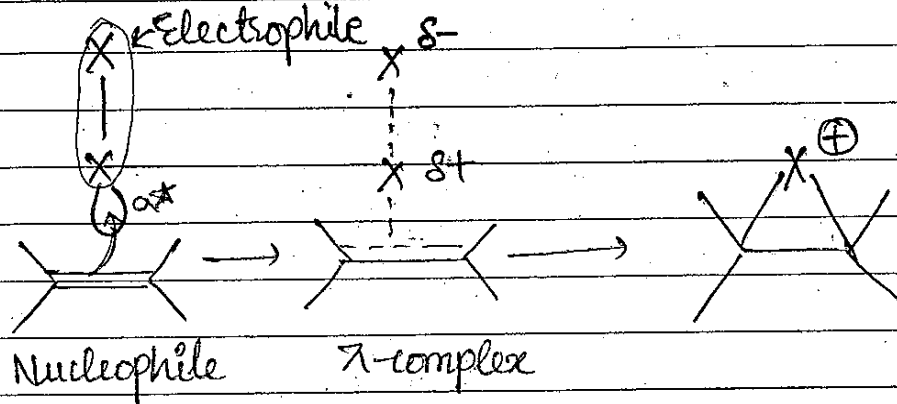 X ← Electrophile X δ-
X X δ+ X ⊕
σ*
Nucleophile π-complex